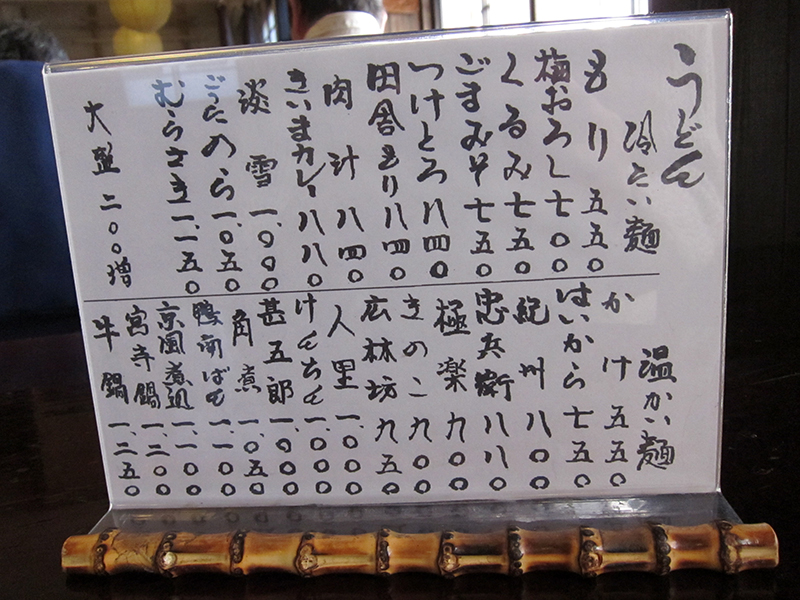 うどん
冷たい麺
もり 五五〇
梅おろし 七〇〇
くるみ 七五〇
ごまみそ 七五〇
つけとろ 八四〇
田舎もり 八四〇
肉汁 八四〇
きいまカレー 八八〇
淡雪 一、〇〇〇
一、〇五〇
むらさき 一、一五〇
大盛 二〇〇増
温かい麺
かけ 五五〇
はいから 七五〇
紀州 八〇〇
忠兵衛 八八〇
極楽 九〇〇
きのこ 九〇〇
広林坊 九五〇
人里 一、〇〇〇
けんちん 一、〇〇〇
甚五郎 一、〇〇〇
角煮 一、〇五〇
鴨南ばん 一、一〇〇
京風煮込 一、一〇〇
宮寺鍋 一、二〇〇
牛鍋 一、二五〇